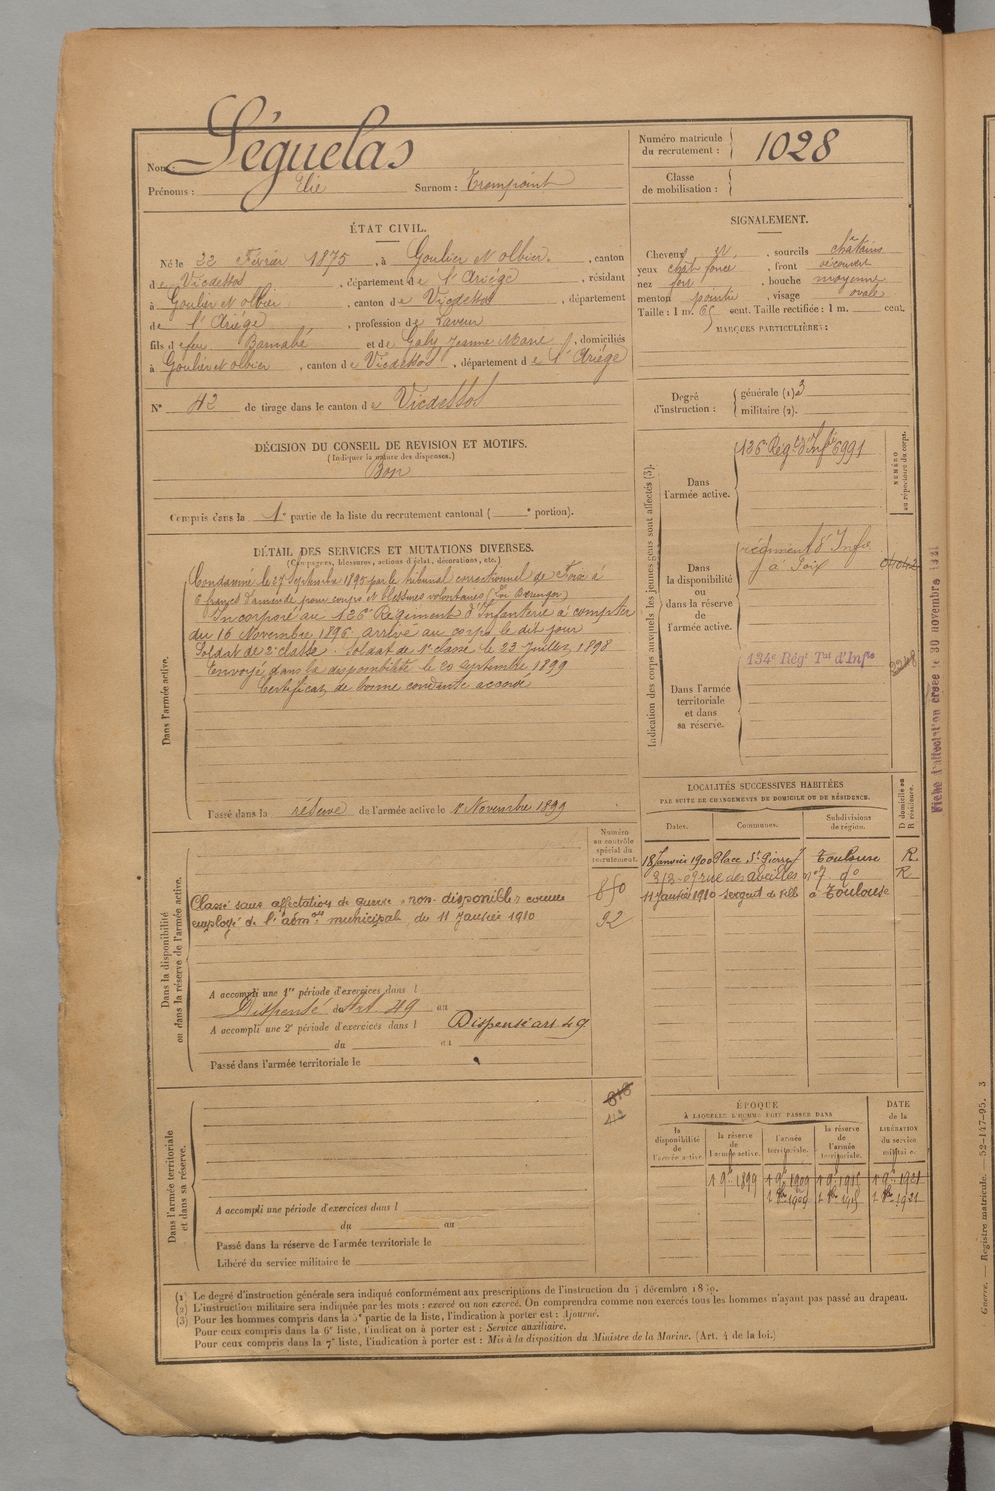 Nom : Séguelas
Numéro matricule du recrutement : 1028
Prénoms : Elie Surnom : Trempoint
Classe de mobilisation :
ÉTAT CIVIL.
Né le 22 Février 1875, à Goulier et olbier, canton
de Vicdessos, département de l'Ariége, résidant
à Goulier et olbier, canton de Vicdessos, département
de l'Ariége, profession de Laveur
fils de feu Barnabé et de Galy Jeanne Marie, domiciliés
à Goulier et olbier, canton de Vicdessos, département de l'Ariége
N° 42 de tirage dans le canton de Vicdessos
SIGNALEMENT.
Cheveux id, sourcils châtains
yeux chât foncé, front découvert
nez fort, bouche moyenne
menton pointu, visage ovale
Taille : 1 m. 65 cent. Taille rectifiée : 1 m. cent.
MARQUES PARTICULIÈRES :
Degré d'instruction : générale (1) 3
militaire (2).
DÉCISION DU CONSEIL DE REVISION ET MOTIFS.
(Indiquer la nature des dispenses.)
Bon
Compris dans la 1e partie de la liste du recrutement cantonal ( e portion).
DÉTAIL DES SERVICES ET MUTATIONS DIVERSES.
(Campagnes, blessures, actions d'éclat, décorations, etc.)
Dans l'armée active.
Condamné le 27 Septembre 1895 par le tribunal correctionnel de Foix à
6 francs d'amende pour coups et blessures volontaires (Loi Bérenger)
Incorporé au 126e Régiment d'Infanterie à compter
du 16 Novembre 1896, arrivé au corps le dit jour
Soldat de 2e classe. Soldat de 1e classe le 23 Juillet 1898
Envoyé dans la disponibilité le 20 Septembre 1899
Certificat de bonne conduite accordé
Passé dans la réserve de l'armée active le 1er Novembre 1899
Indication des corps auxquels les jeunes gens sont affectés (3).
NUMÉRO au répertoire du corps.
Dans l'armée active.
126e Régt d'Infie 6991
Dans la disponibilité ou dans la réserve de l'armée active.
régiment d'Infie
à Foix
Dans l'armée territoriale et dans sa réserve.
134e Régt Tal d'Infie
Fiche d'affectation créée le 30 novembre
LOCALITÉS SUCCESSIVES HABITÉES
PAR SUITE DE CHANGEMENTS DE DOMICILE OU DE RÉSIDENCE.
Dates. Communes. Subdivisions de région. D domicile ou R résidence.
18 Janvier 1900 Place St Pierre 7 Toulouse R
rue des abeilles n°7 do R
11 janvier 1910 sergent de ville à Toulouse
Numéro au contrôle spécial du recrutement.
850
92
Dans la disponibilité ou dans la réserve de l'armée active.
Classé sans affectation de guerre "non disponible" comme
employé de l'admon municipal du 11 Janvier 1910
A accompli une 1re période d'exercices dans l
Dispensé du Art 49 au
A accompli une 2e période d'exercices dans l Dispensé art. 49
du au
Passé dans l'armée territoriale le
Dans l'armée territoriale et dans sa réserve.
A accompli une période d'exercices dans l
du au
Passé dans la réserve de l'armée territoriale le
Libéré du service militaire le
ÉPOQUE
À LAQUELLE L'HOMME DOIT PASSER DANS
DATE de la LIBÉRATION du service militaire.
la disponibilité de l'armée active. la réserve de l'armée active. l'armée territoriale. la réserve de l'armée territoriale.
1 9bre 1899 1 9bre 1909 1 9bre 1915 1 9bre 1921
1 8bre 1909 1 8bre 1915 1 8bre 1921
(1) Le degré d'instruction générale sera indiqué conformément aux prescriptions de l'instruction du 4 décembre 1889.
(2) L'instruction militaire sera indiquée par les mots : exercé ou non exercé. On comprendra comme non exercés tous les hommes n'ayant pas passé au drapeau.
(3) Pour les hommes compris dans la 5e partie de la liste, l'indication à porter est : Ajourné.
Pour ceux compris dans la 6e liste, l'indication à porter est : Service auxiliaire.
Pour ceux compris dans la 7e liste, l'indication à porter est : Mis à la disposition du Ministre de la Marine. (Art. 4 de la loi.)
Guerre. — Registre matricule. — 52-147-95. 3